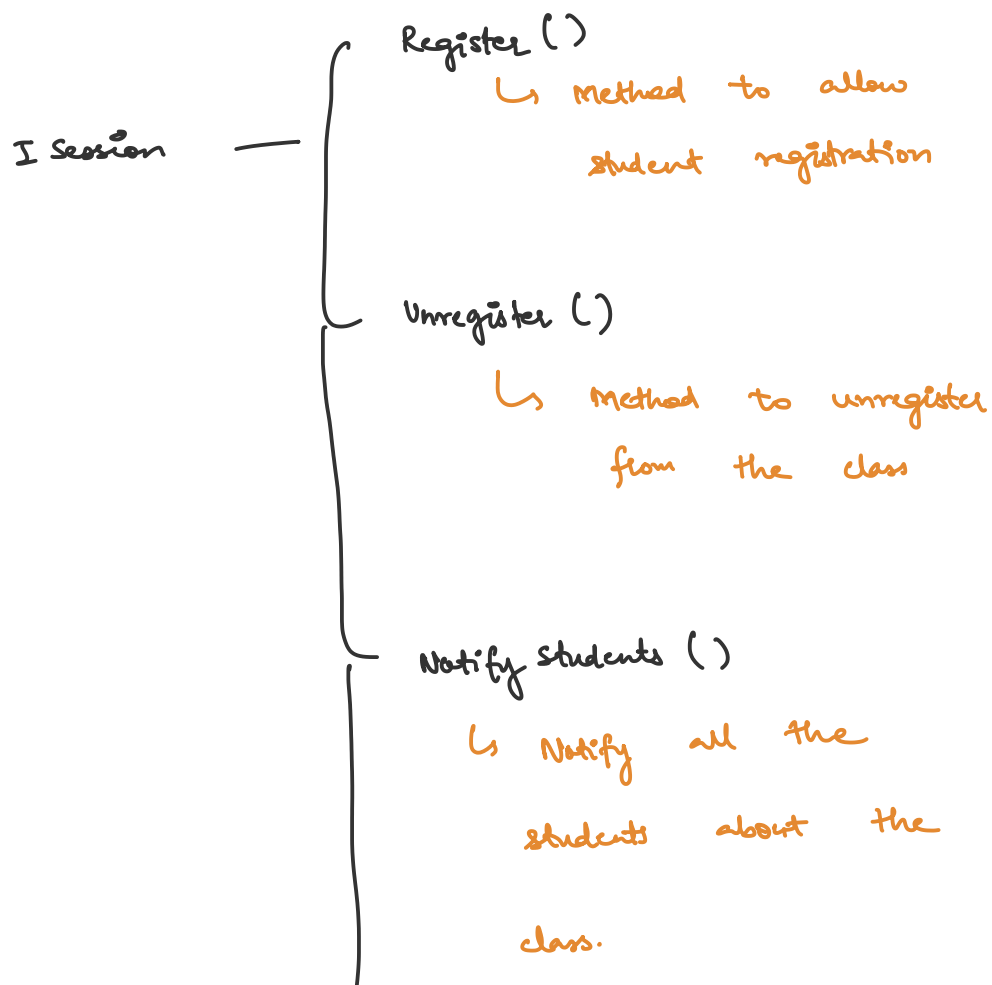 Register ()
↳ Method to allow
I Session
student registration
Unregister ()
↳ Method to unregister
from the class
Notify Students ()
↳ Notify all the
students about the
class.